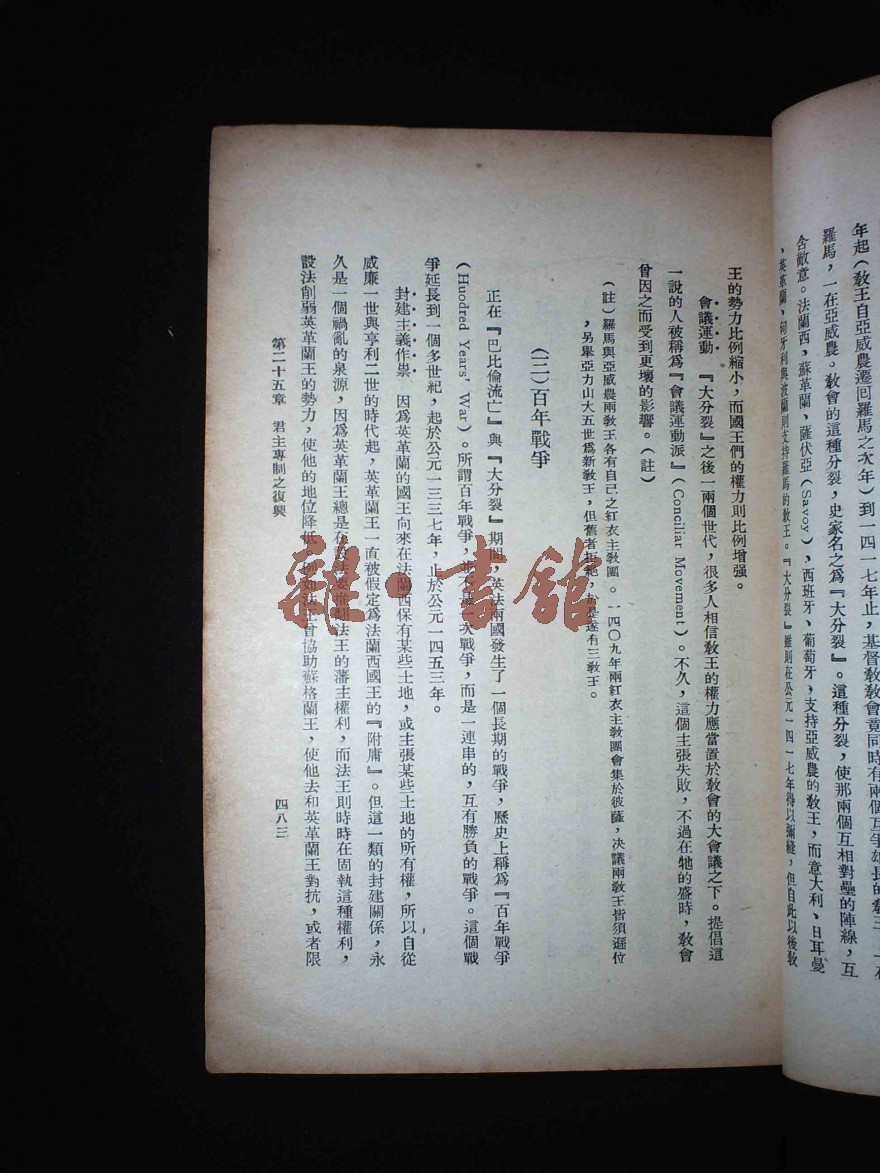 年起（敎王自亞威農遷囘羅馬之次年）到一四一七年止，基督敎敎會竟同時有兩個互爭雄長的敎王，一在
羅馬，一在亞威農。敎會的這種分裂，史家名之爲『大分裂』。這種分裂，使那兩個互相對壘的陣線，互
含敵意。法蘭西，蘇革蘭、薩伏亞（Savoy），西班牙、葡萄牙，支持亞威農的敎王，而意大利、日耳曼
，英革蘭，匈牙利與波蘭則支持羅馬的敎王。『大分裂』雖則在公元一四一七年得以彌縫，但自此以後敎
王的勢力比例縮小，而國王們的權力則比例增强。
會議運動　『大分裂』之後一兩個世代，很多人相信敎王的權力應當置於敎會的大會議之下。提倡這
一說的人被稱爲『會議運動派』（Conciliar Movement）。不久，這個主張失敗，不過在牠的盛時，敎會
曾因之而受到更壞的影響。（註）
（註）羅馬與亞威農兩敎王各有自己之紅衣主敎團。一四〇九年兩紅衣主敎團會集於彼薩，决議兩敎王皆須遜位
，另舉亞力山大五世爲新敎王，但舊者拒絕，於是遂有三敎王。
（三）百年戰爭
正在『巴比倫流亡』與『大分裂』期間，英法兩國發生了一個長期的戰爭，歷史上稱爲『百年戰爭
（Huodred Years' War）。所謂百年戰爭，並不是一次戰爭，而是一連串的，互有勝負的戰爭。這個戰
爭延長到一個多世紀，起於公元一三三七年，止於公元一四五三年。
封建主義作祟　因爲英革蘭的國王向來在法蘭西保有某些土地，或主張某些土地的所有權，所以自從
威廉一世與亨利二世的時代起，英革蘭王一直被假定爲法蘭西國王的『附庸』。但這一類的封建關係，永
久是一個禍亂的泉源，因爲英革蘭王總是在設法要推翻法王的藩主權利，而法王則時時在固執這種權利，
設法削弱英革蘭王的勢力，使他的地位降低。例如法王曾協助蘇格蘭王，使他去和英革蘭王對抗，或者限
第二十五章　君主專制之復興
四八三
雜・書館